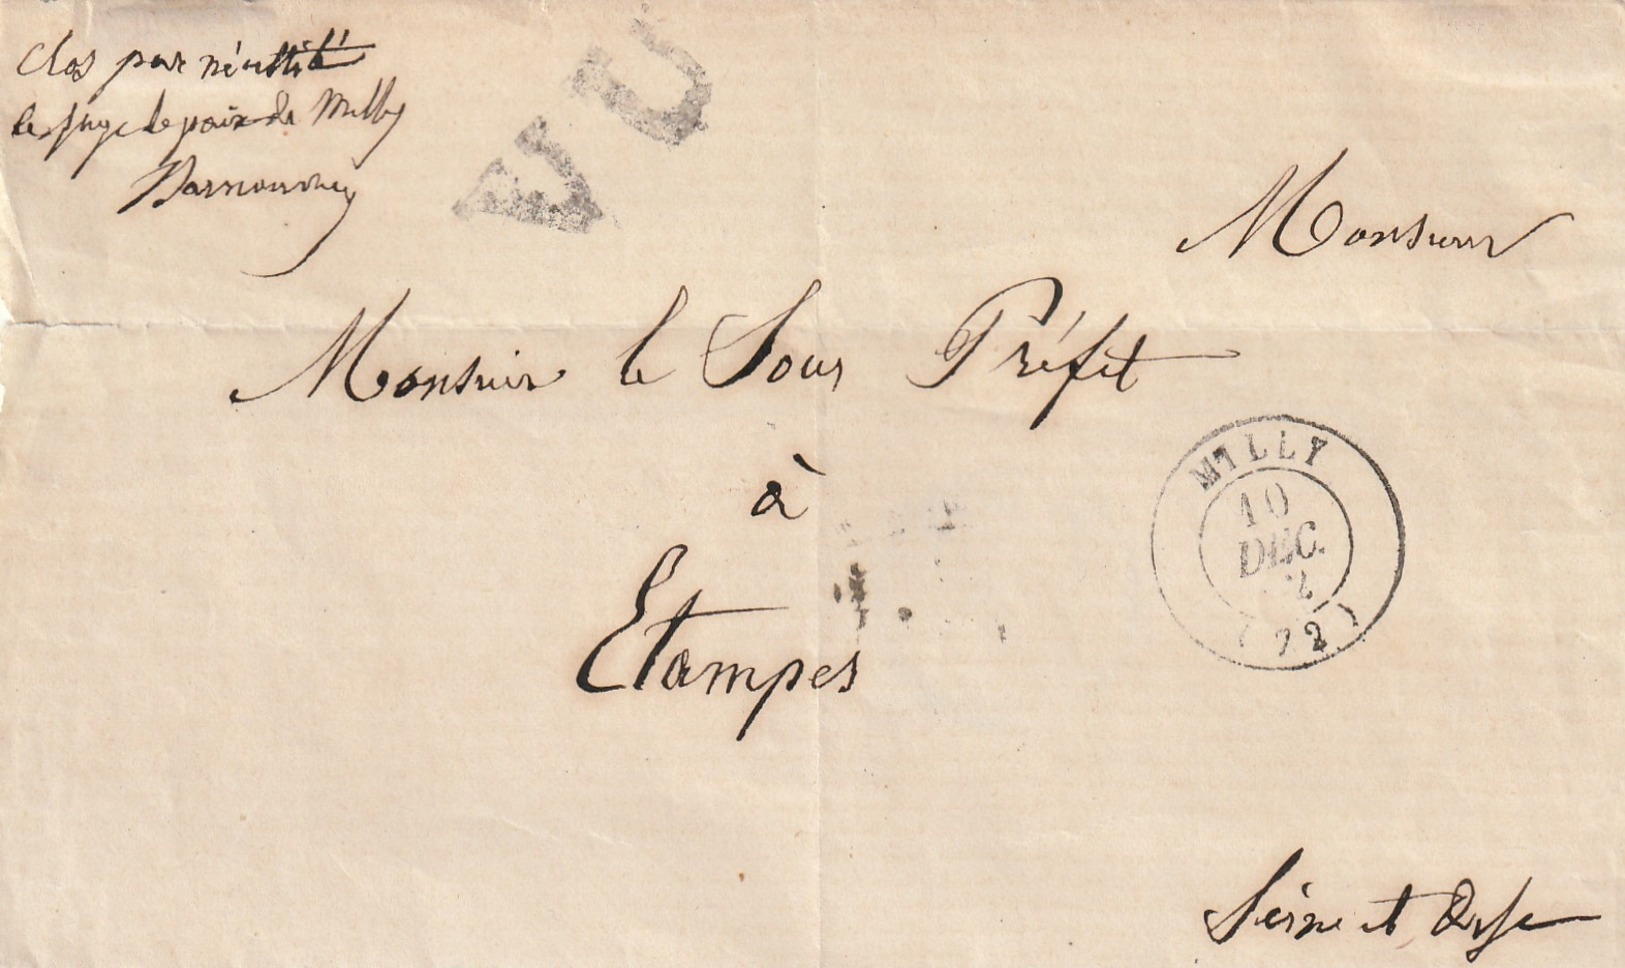 Clos par nécessité
le juge de paix de Milly
VU
Monsieur
Monsieur le Sous Préfet
à
Etampes
MILLY
10
DEC.
(72)
Seine et Oise